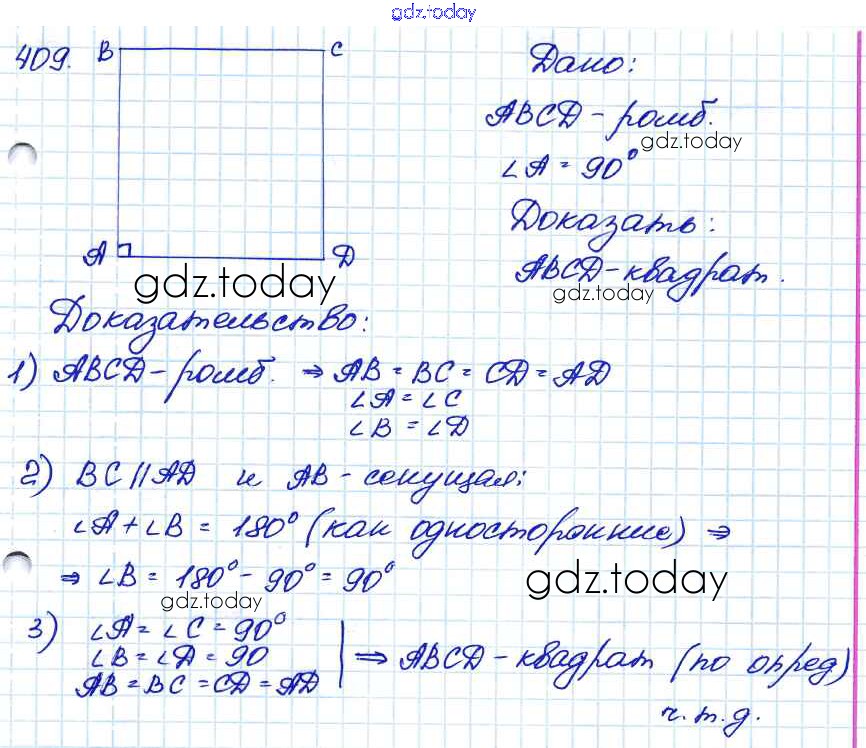 gdz.today
409.
B
C
A
D
Дано:
ABCD - ромб.
gdz.today
∠A = 90°
Доказать:
ABCD - квадрат.
gdz.today
gdz.today
Доказательство:
1) ABCD - ромб. ⇒ AB = BC = CD = AD
∠A = ∠C
∠B = ∠D
2) BC || AD и AB - секущая:
∠A + ∠B = 180° (как односторонние) ⇒
⇒ ∠B = 180° - 90° = 90°
gdz.today
gdz.today
3) ∠A = ∠C = 90°
∠B = ∠D = 90
AB = BC = CD = AD
⇒ ABCD - квадрат (по опред)
ч.т.д.